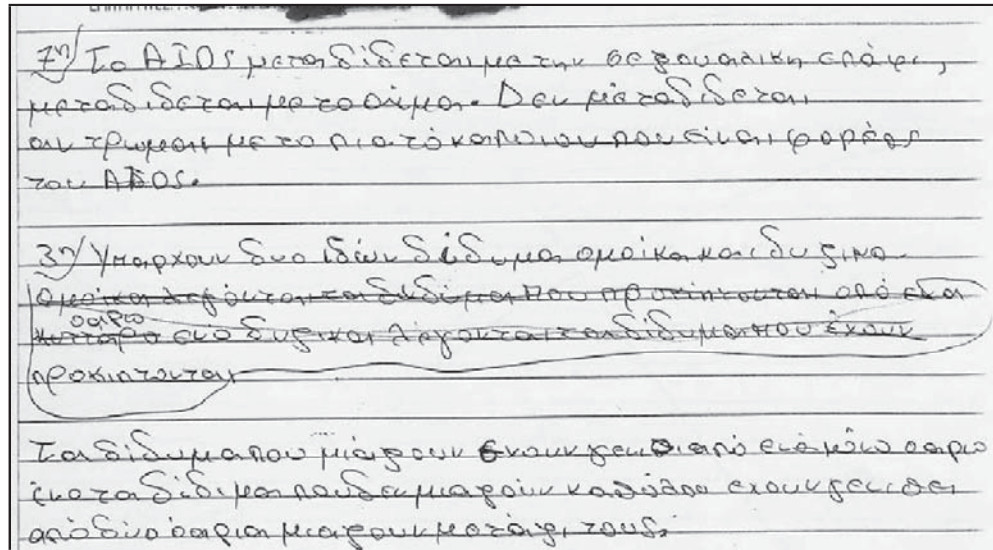 7η) Το AIDS μεταδίδεται με την σεξουαλικη επάφι,
μεταδιδεται με το αίμα. Δεν μεταδιδεται
αν τρωμαι με το πιατό καποιου που είναι φορέας
του AIDS.
3η) Υπαρχουν δυο ιδών δίδυμα ομοίκα και δυξινα.
ομοίκα λεγόνται τα διδύμα που προκίπτουνται από ενα
οαριο
κυτταρο ενο δυξικα λέγονται τα διδυμα που έχουν
προκιπτουνται
Τα διδυμα που μιάζουν εχουν γεν από ενα μόνο οαριο
ένα τα δίδιμα που δεν μιαζούν καθόλου εχουν γενιθει
από δύο όαρια μιαζουν ματάξι τους.